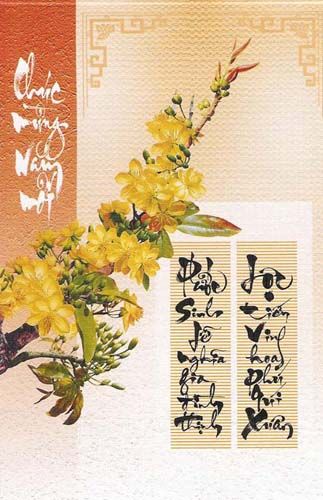 Chúc Mừng Năm Mới
Phước Sinh Lễ nghĩa gia đình thịnh
Lộc tiến Vinh hoa Phú Quí Xuân